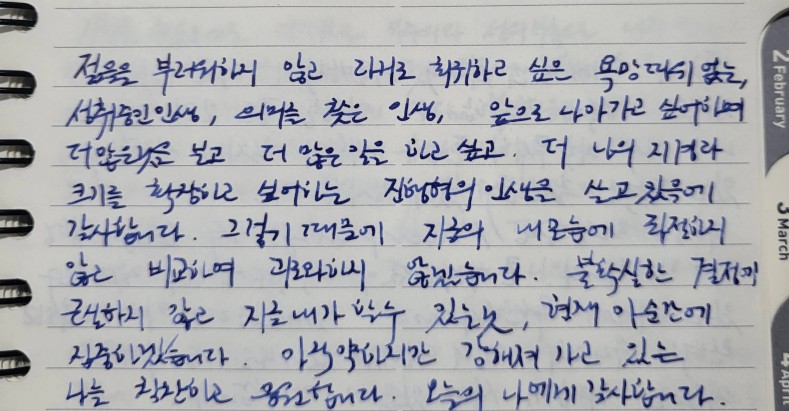 젊음을 부러워하지 않고 과거로 회귀하고 싶은 욕망따위 없는,
성취중인 인생, 의미를 찾은 인생, 앞으로 나아가고 싶어하며
더 많은것을 보고 더 많은 일을 하고 싶고. 더 나의 지경과
크기를 확장하고 싶어하는 진행형의 인생을 살고 있음에
감사합니다. 그렇기 때문에 지금의 내 모습에 좌절하지
않고 비교하며 괴로워하지 않겠습니다. 불확실한 결정에
근심하지 않고 지금 내가 할 수 있는 것, 현재 이 순간에
집중하겠습니다. 아직 약하지만 강해져 가고 있는
나를 칭찬하고 응원합니다. 오늘의 나에게 감사합니다.
2 February
3 March
4 April